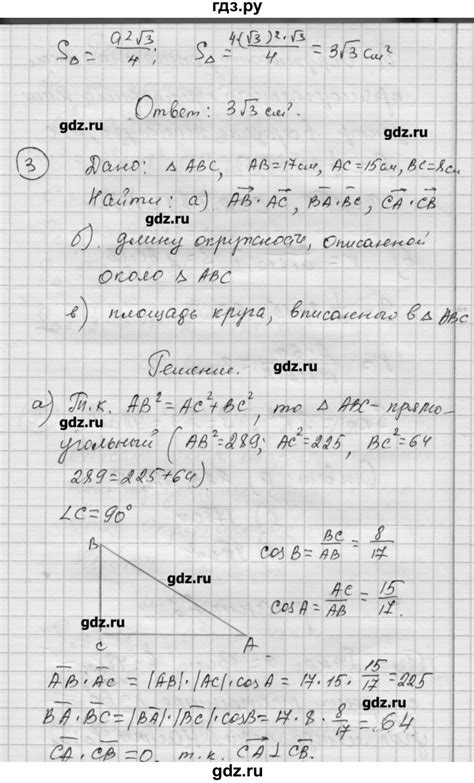 гдз.ру
S_Δ = a²√3/4; S_Δ = 4(√3)²·√3/4 = 3√3 см².
Ответ: 3√3 см².
gdz.ru
3 Дано: △ ABC, AB=17см, AC=15см, BC=8см
gdz.ru
Найти: а) AB · AC, BA · BC, CA · CB
б). длину окружности, описанной
около △ ABC
в) площадь круга, вписанного в △ ABC
gdz.ru
Решение.
gdz.ru
а) Т.к. AB² = AC² + BC², то △ ABC – прямо-
gdz.ru
угольный (AB² = 289; AC² = 225, BC² = 64
289 = 225 + 64).
gdz.ru
∠C = 90°
B
cos B = BC/AB = 8/17
gdz.ru
cos A = AC/AB = 15/17.
gdz.ru
C A
gdz.ru
AB · AC = |AB| · |AC| · cos A = 17 · 15 · 15/17 = 225
BA · BC = |BA| · |BC| · cos B = 17 · 8 · 8/17 = 64
gdz.ru
CA · CB = 0, т.к. CA ⊥ CB.
gdz.ru